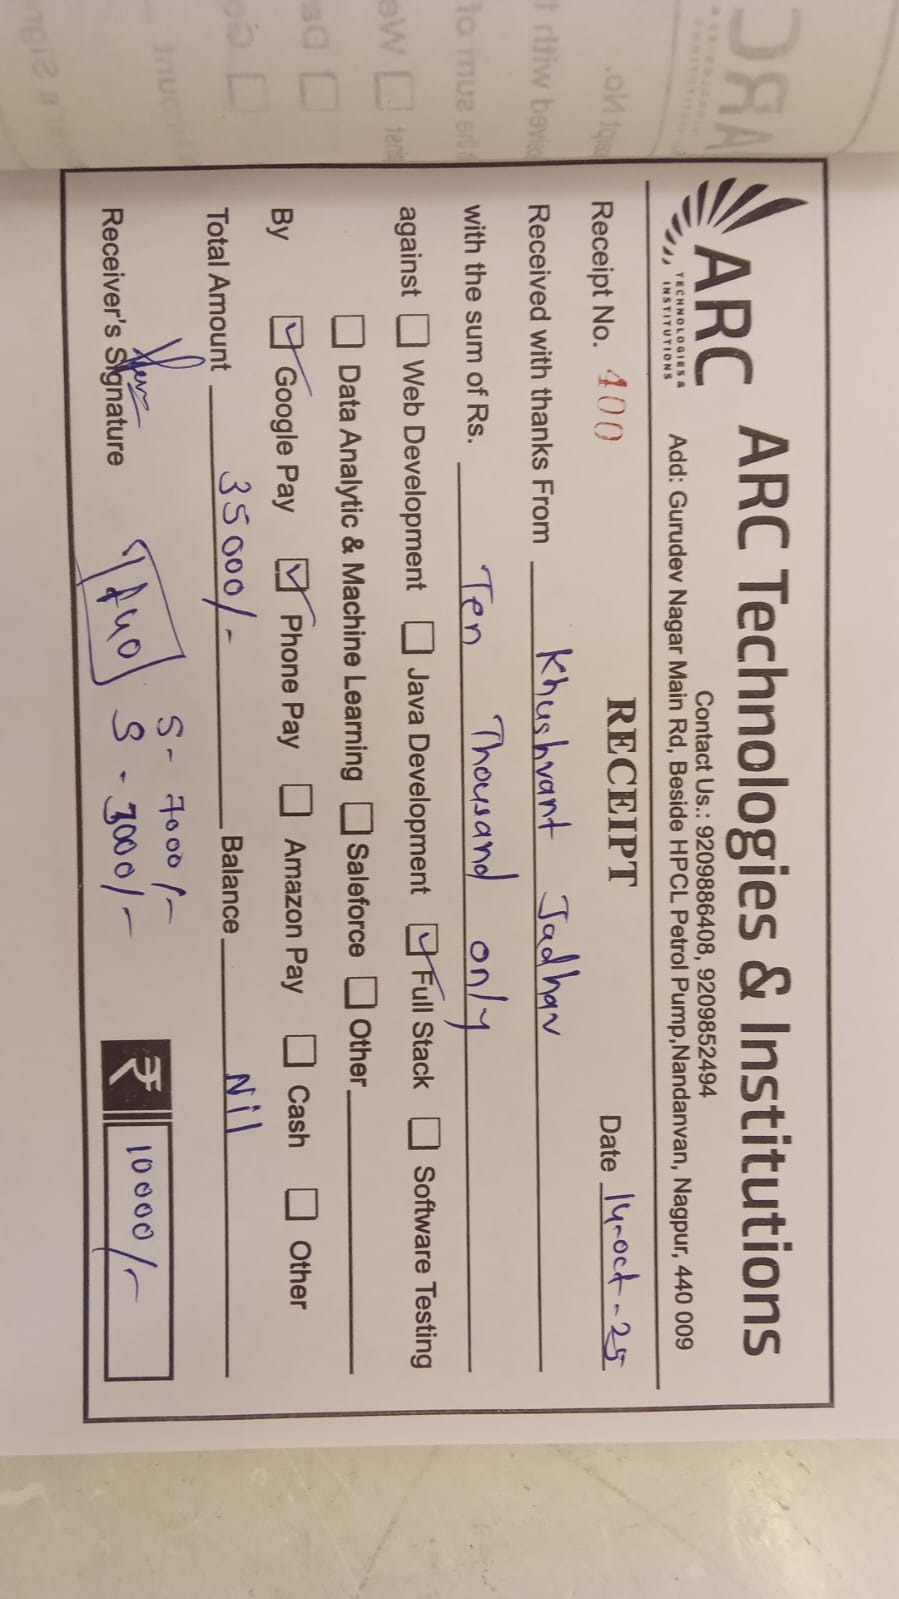 ARC
TECHNOLOGIES &
INSTITUTIONS
ARC Technologies & Institutions
Contact Us.: 9209886408, 9209852494
Add: Gurudev Nagar Main Rd, Beside HPCL Petrol Pump,Nandanvan, Nagpur, 440 009
RECEIPT
Receipt No. 400 Date 14-oct-25
Received with thanks From Khushvant Jadhav
with the sum of Rs. Ten Thousand only
against Web Development Java Development Full Stack Software Testing
Data Analytic & Machine Learning Saleforce Other
By Google Pay Phone Pay Amazon Pay Cash Other
Total Amount 35000/- Balance Nil
S- 7000/-
S - 3000/-
₹ 10000/-
Receiver's Signature